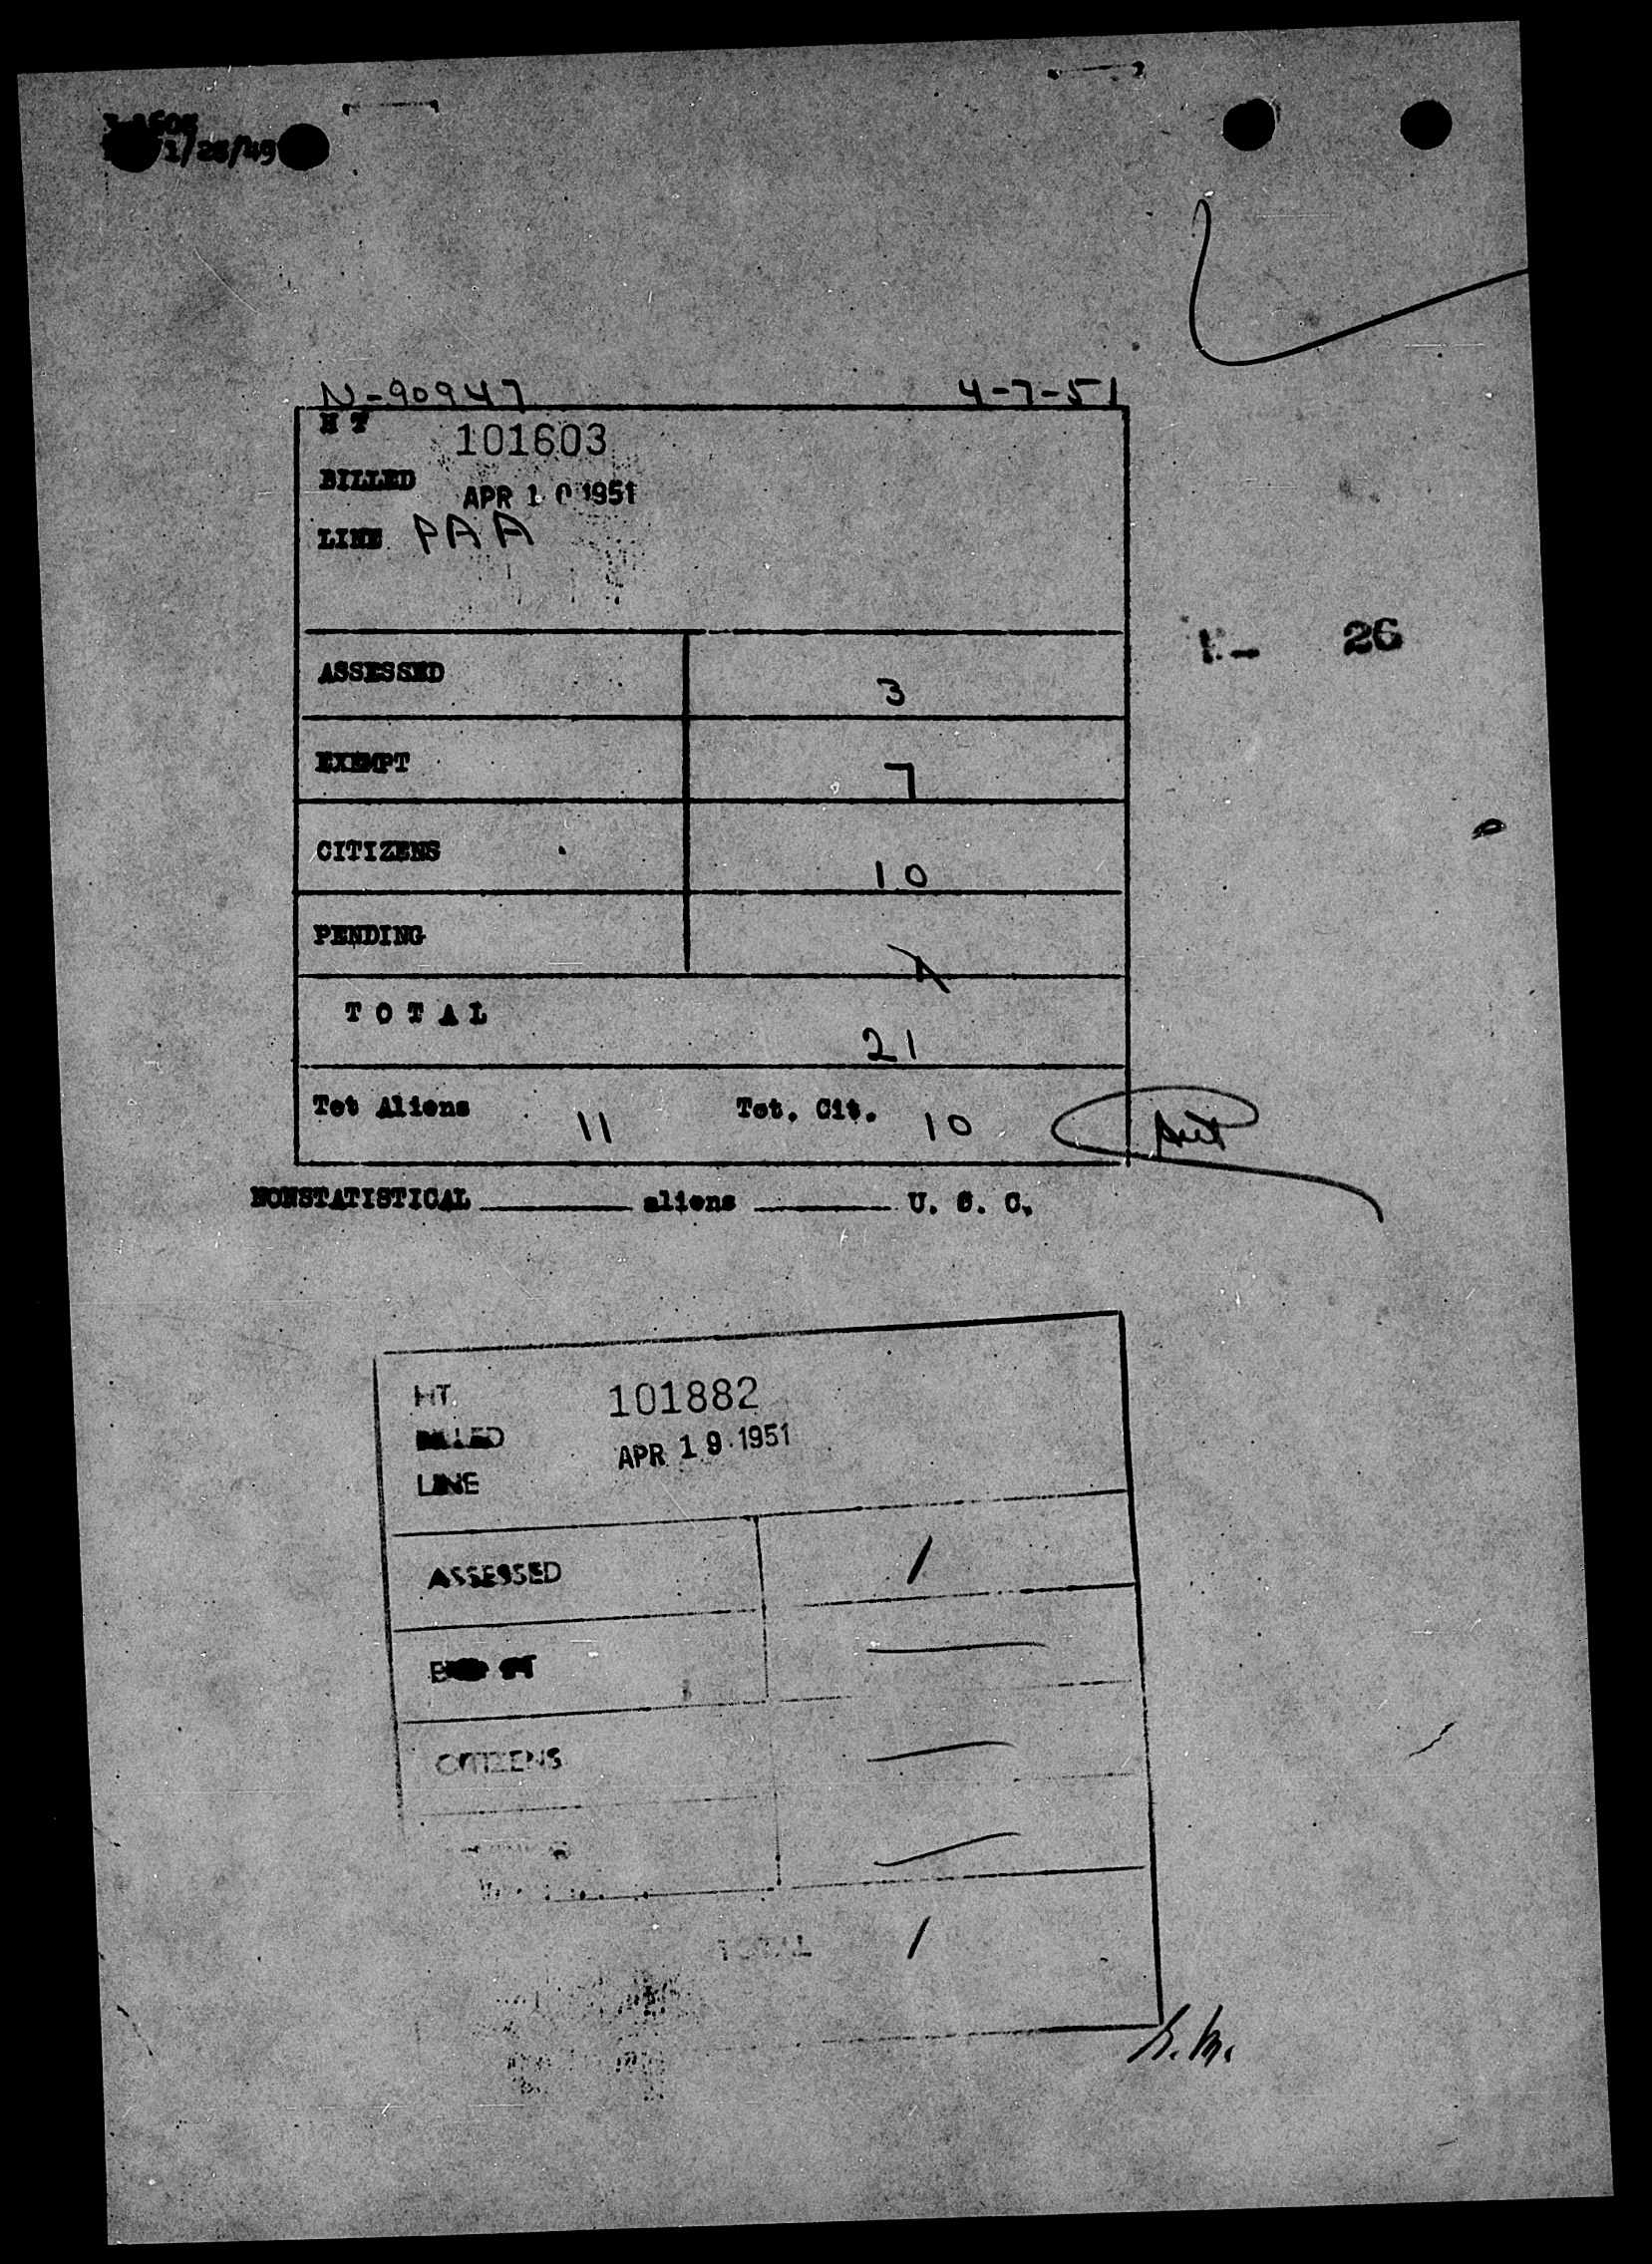 1/25/49
N-90947 4-7-51
H T 101603
BILLED APR 10 1951
LINE PAA
26
ASSESSED 3
EXEMPT 7
CITIZENS 10
PENDING
TOTAL 21
Tot Aliens 11 Tot. Cit. 10
NONSTATISTICAL aliens U. S. C.
HT. 101882
BILLED APR 19 1951
LINE
ASSESSED 1
CITIZENS
TOTAL 1